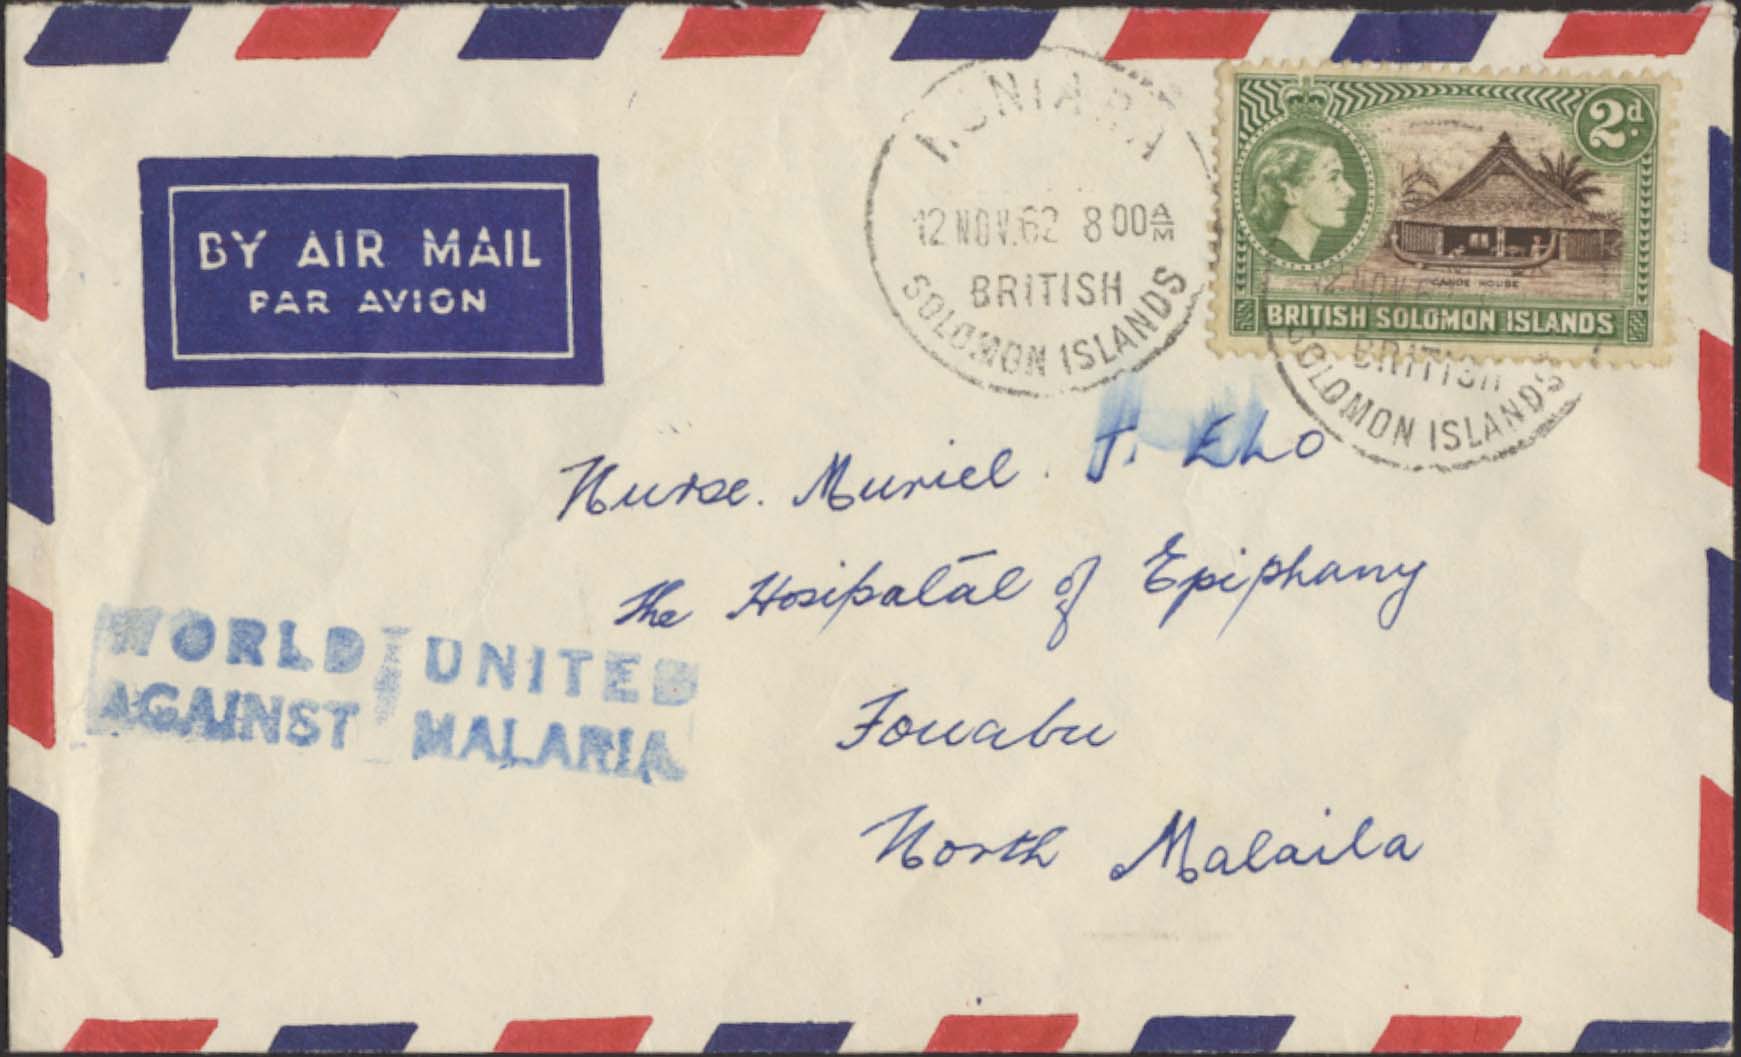 HONIARA
12 NOV.62 8 00 AM
BRITISH
SOLOMON ISLANDS
2d.
CANOE HOUSE
BRITISH SOLOMON ISLANDS
12 NOV.62
BRITISH
SOLOMON ISLANDS
BY AIR MAIL
PAR AVION
Nurse. Muriel. J. Elo
The Hosipatal of Epiphany
Fouabu
North Malaila
WORLD UNITED
AGAINST MALARIA